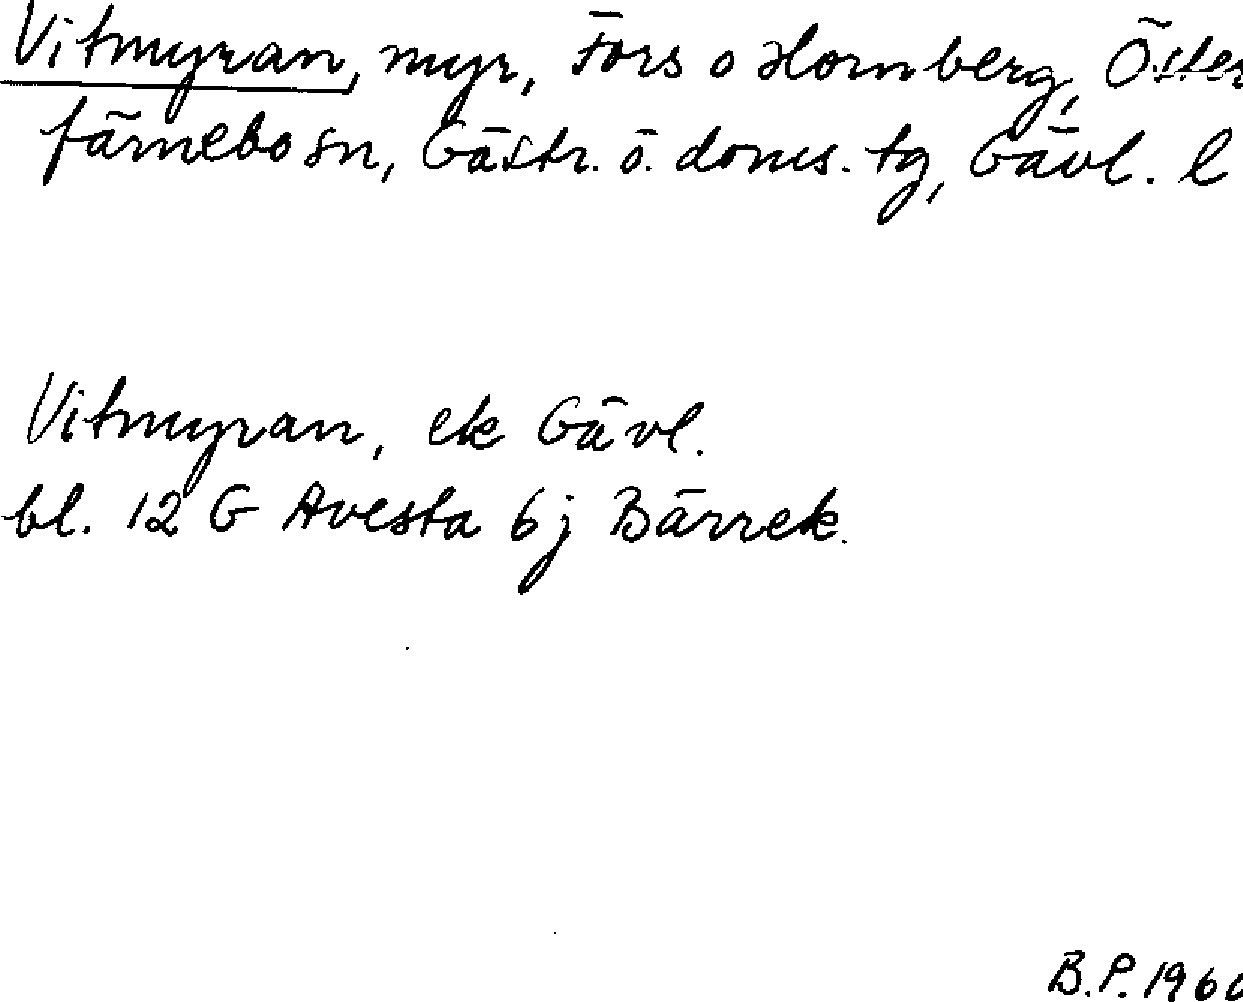 Vitmyran, myr, Fors o Hornberg, Öster
färnebo sn, Gästr. ö. doms. tg, Gävl. l
Vitmyran, ek Gävl.
bl. 12 G Avesta 6j Bärrek.
B.P. 1960